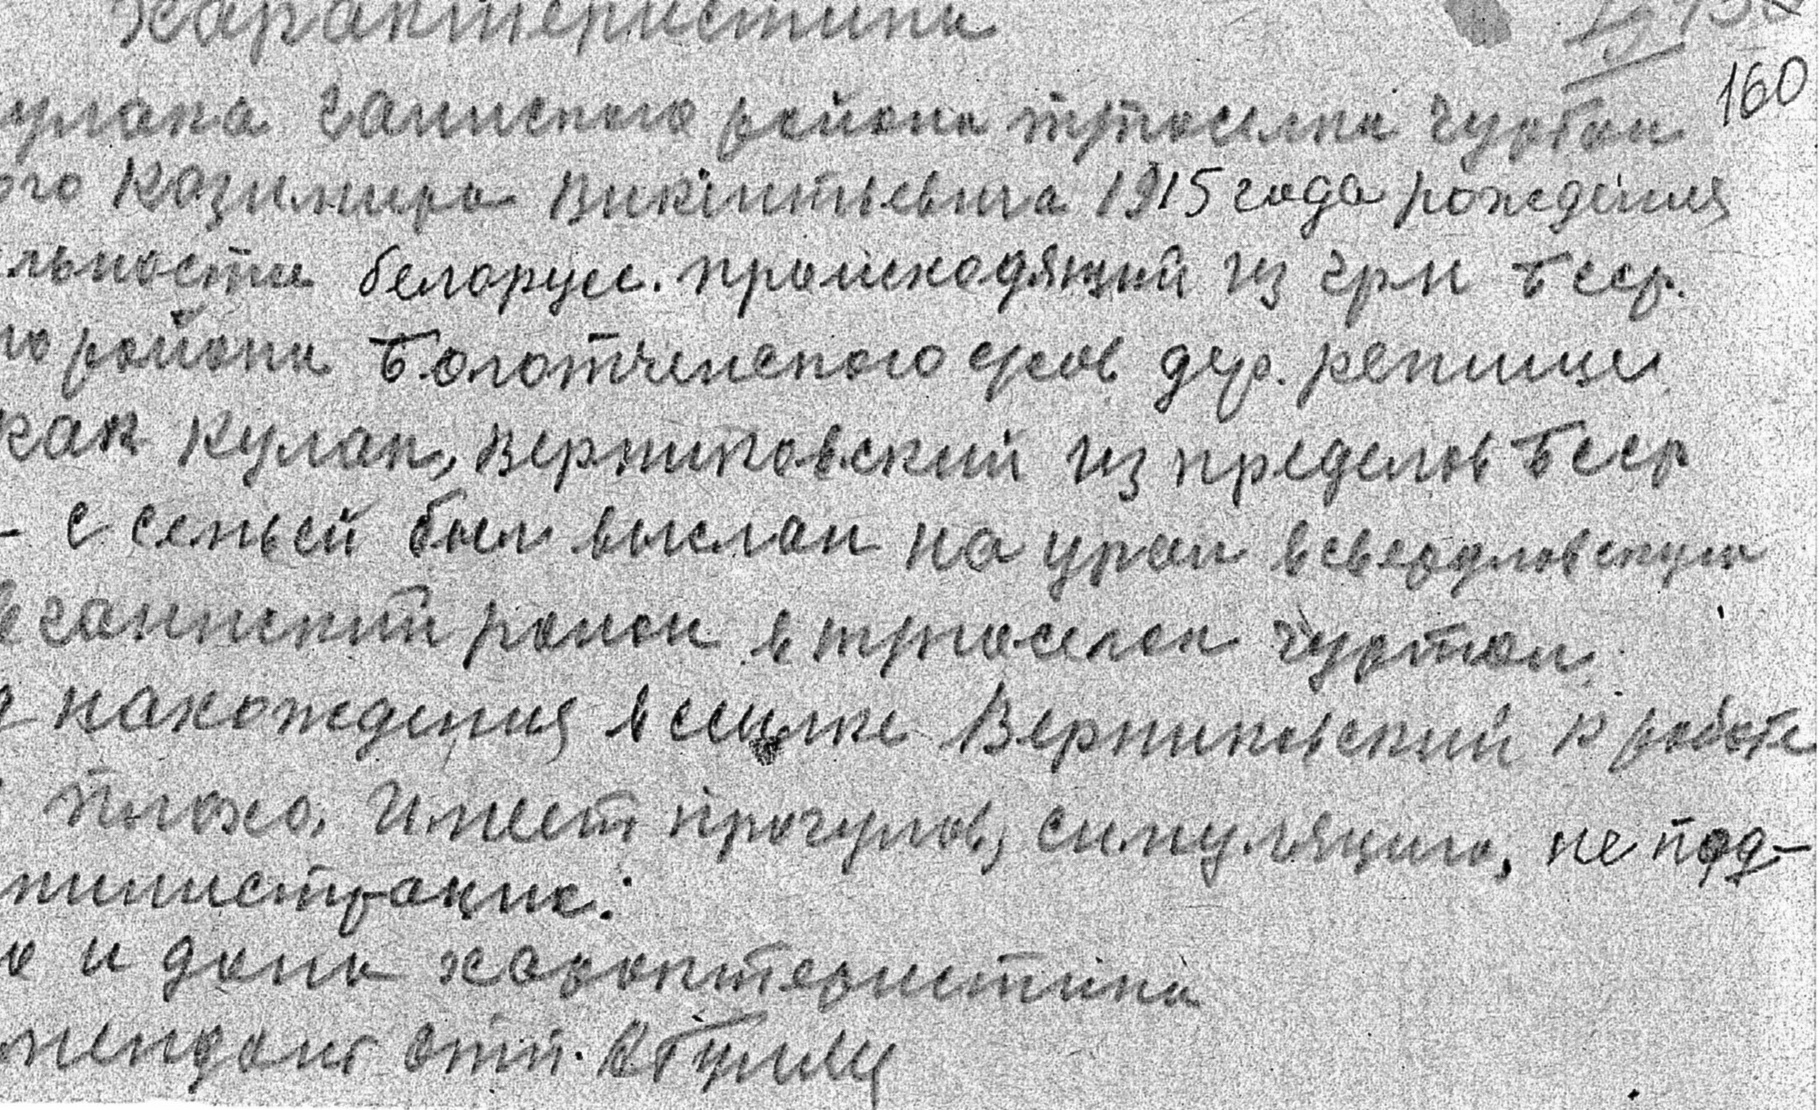 Характеристика
160
улака Гаинского района трпоселка Чуртан
ого Казимира Викентьевича 1915 года рождения
льности белорус. происходящий из грн Бсср.
го района Болотченского сров дер. репище
как кулак, Верниковский из пределов Бсср
- с семьей был выслан на урал в свердловскую
в гаинский раион в трпоселок Чуртан.
нахождения в ссылке Верниковский к работе
плохо. Имеет прогулов, симуляцию, не под-
министрацие.
о и дана характеристика
мендант отп.